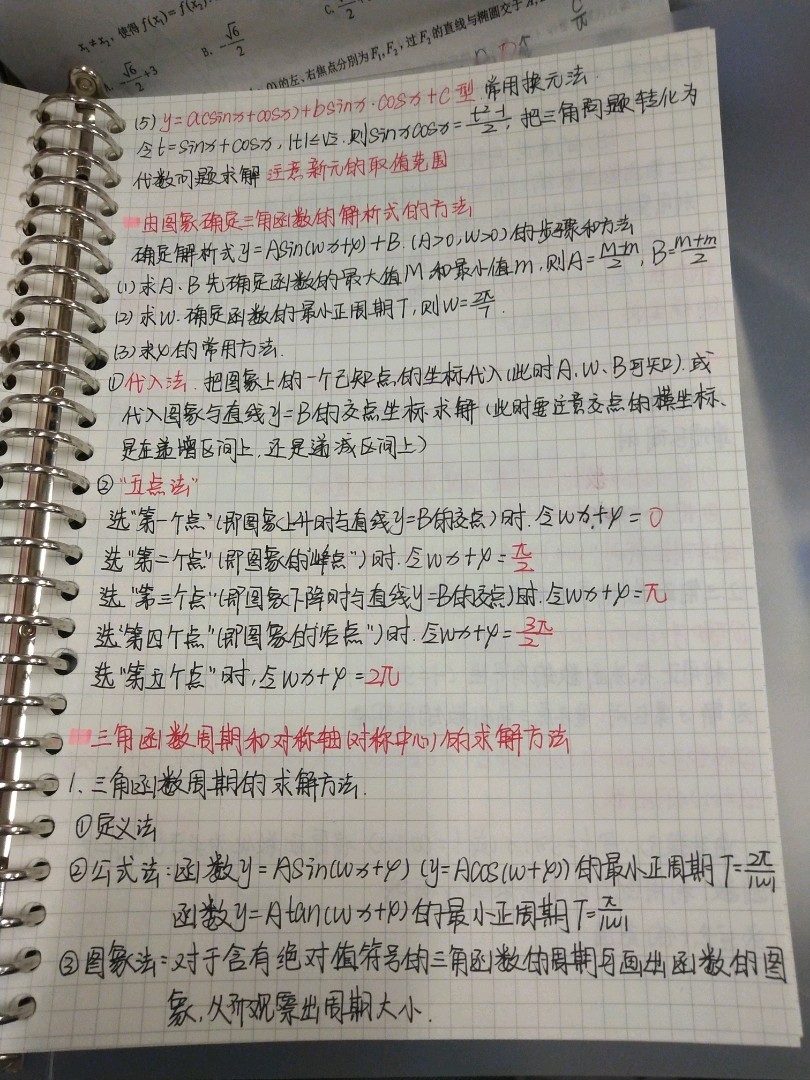 x₁≠x₂, 使得f(x₁)=f(x₂)
√6/2+3
B. -√6/2
C.
的左、右焦点分别为F₁,F₂, 过F₂的直线与椭圆交于
(5) y=a(sinx+cosx)+bsinx·cosx+c型 常用换元法.
令t=sinx+cosx, |t|≤√2. 则sinxcosx=t²-1/2, 把三角问题转化为
代数问题求解 注意新元的取值范围
由图象确定三角函数的解析式的方法
确定解析式y=Asin(wx+φ)+B. (A>0, w>0)的步骤和方法
(1)求A、B先确定函数的最大值M和最小值m, 则A=M-m/2, B=M+m/2
(2)求w. 确定函数的最小正周期T, 则w=2π/T.
(3)求φ的常用方法.
①代入法. 把图象上的一个已知点的坐标代入(此时A、w、B可知). 或
代入图象与直线y=B的交点坐标求解(此时要注意交点的横坐标、
是在递增区间上, 还是递减区间上)
②"五点法"
选"第一个点"(即图象上升时与直线y=B的交点)时. 令wx+φ=0
选"第二个点"(即图象的"峰点")时. 令wx+φ=π/2
选"第三个点"(即图象下降时与直线y=B的交点)时. 令wx+φ=π
选"第四个点"(即图象的"谷点")时. 令wx+φ=3π/2
选"第五个点"时, 令wx+φ=2π
三角函数周期和对称轴(对称中心)的求解方法
1、三角函数周期的求解方法.
①定义法
②公式法: 函数y=Asin(wx+φ) (y=Acos(w+φ))的最小正周期T=2π/|w|
函数y=Atan(wx+φ)的最小正周期T=π/|w|
③图象法: 对于含有绝对值符号的三角函数的周期可画出函数的图
象, 从而观察出周期大小.